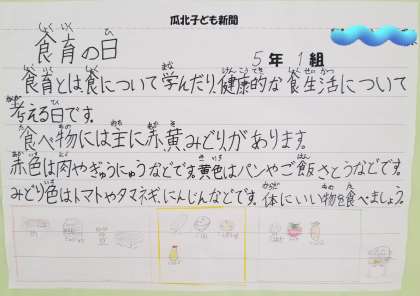 瓜北子ども新聞
食育の日
5年1組
食育とは食について学んだり、健康的な食生活について
考える日です。
食べ物には主に赤、黄、みどりがあります。
赤色は肉やぎゅうにゅうなどです。黄色はパンやご飯、さとうなどです。
みどり色はトマトやタマネギ、にんじんなどです。体にいい物を食べましょう。